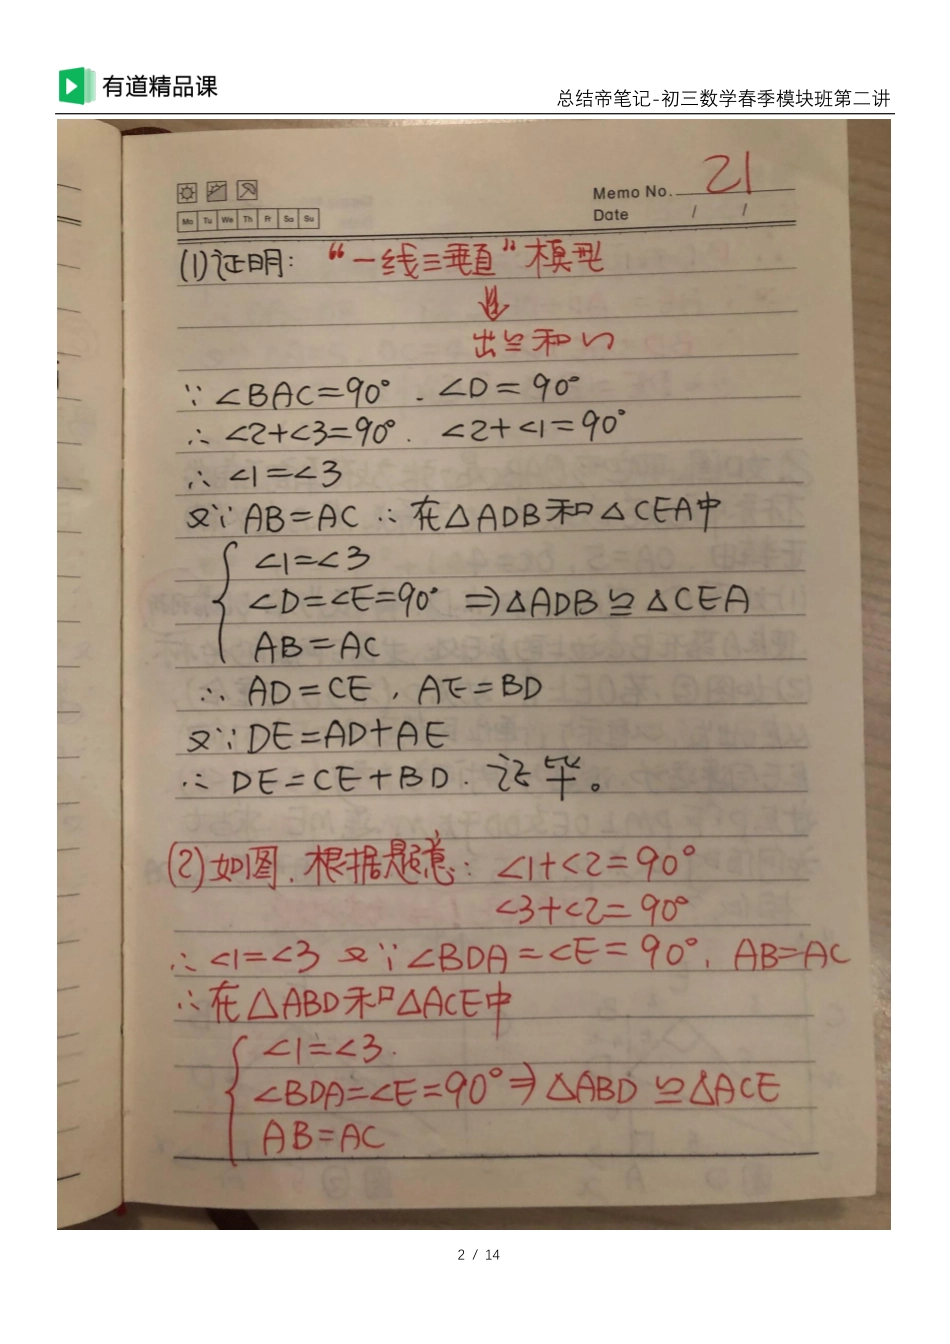 有道精品课
总结帝笔记-初三数学春季模块班第二讲
21
Memo No.
Mo Tu We Th Fr Sa Su
Date / /
(1)证明: “一线三垂直”模型
⇓
出≌和∽
∵∠BAC=90°.∠D=90°
∴∠2+∠3=90°.∠2+∠1=90°
∴∠1=∠3
又∵AB=AC ∴在△ADB和△CEA中
∠1=∠3
∠D=∠E=90° ⇒△ADB≌△CEA
AB=AC
∴AD=CE,AE=BD
又∵DE=AD+AE
∴DE=CE+BD.证毕。
(2)如图.根据题意:∠1+∠2=90°
∠3+∠2=90°
∴∠1=∠3 又∵∠BDA=∠E=90°,AB=AC
∴在△ABD和△ACE中
∠1=∠3.
∠BDA=∠E=90°⇒△ABD≌△ACE
AB=AC
2 / 14